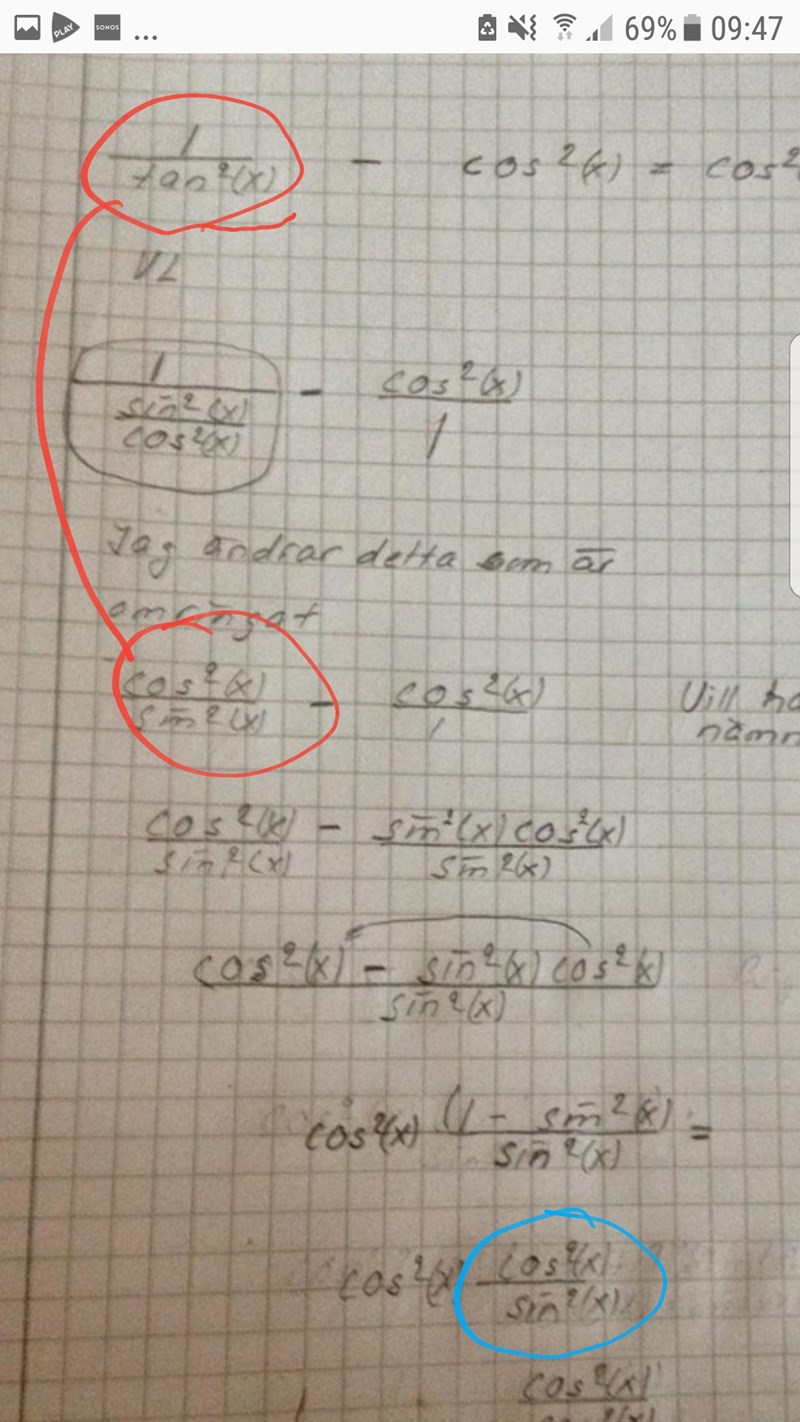 PLAY SONOS ... 69% 09:47
1/tan²(x) - cos²(x) = cos²
VL
1/(sin²(x)/cos²(x)) - cos²(x)/1
Jag ändrar detta som är
omringat
cos²(x)/sin²(x) - cos²(x)/1 Vill ha
nämn
cos²(x)/sin²(x) - sin²(x)cos²(x)/sin²(x)
(cos²(x) - sin²(x)cos²(x))/sin²(x)
cos²(x) (1 - sin²(x)/sin²(x) =
cos²(x) cos²(x)/sin²(x)
cos²(x)